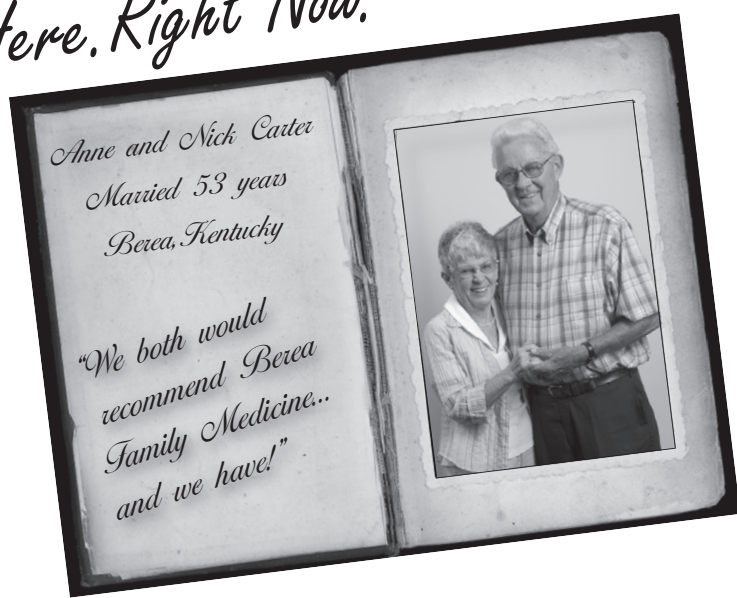 Here. Right Now.
Anne and Nick Carter
Married 53 years
Berea, Kentucky
“We both would
recommend Berea
Family Medicine...
and we have!”